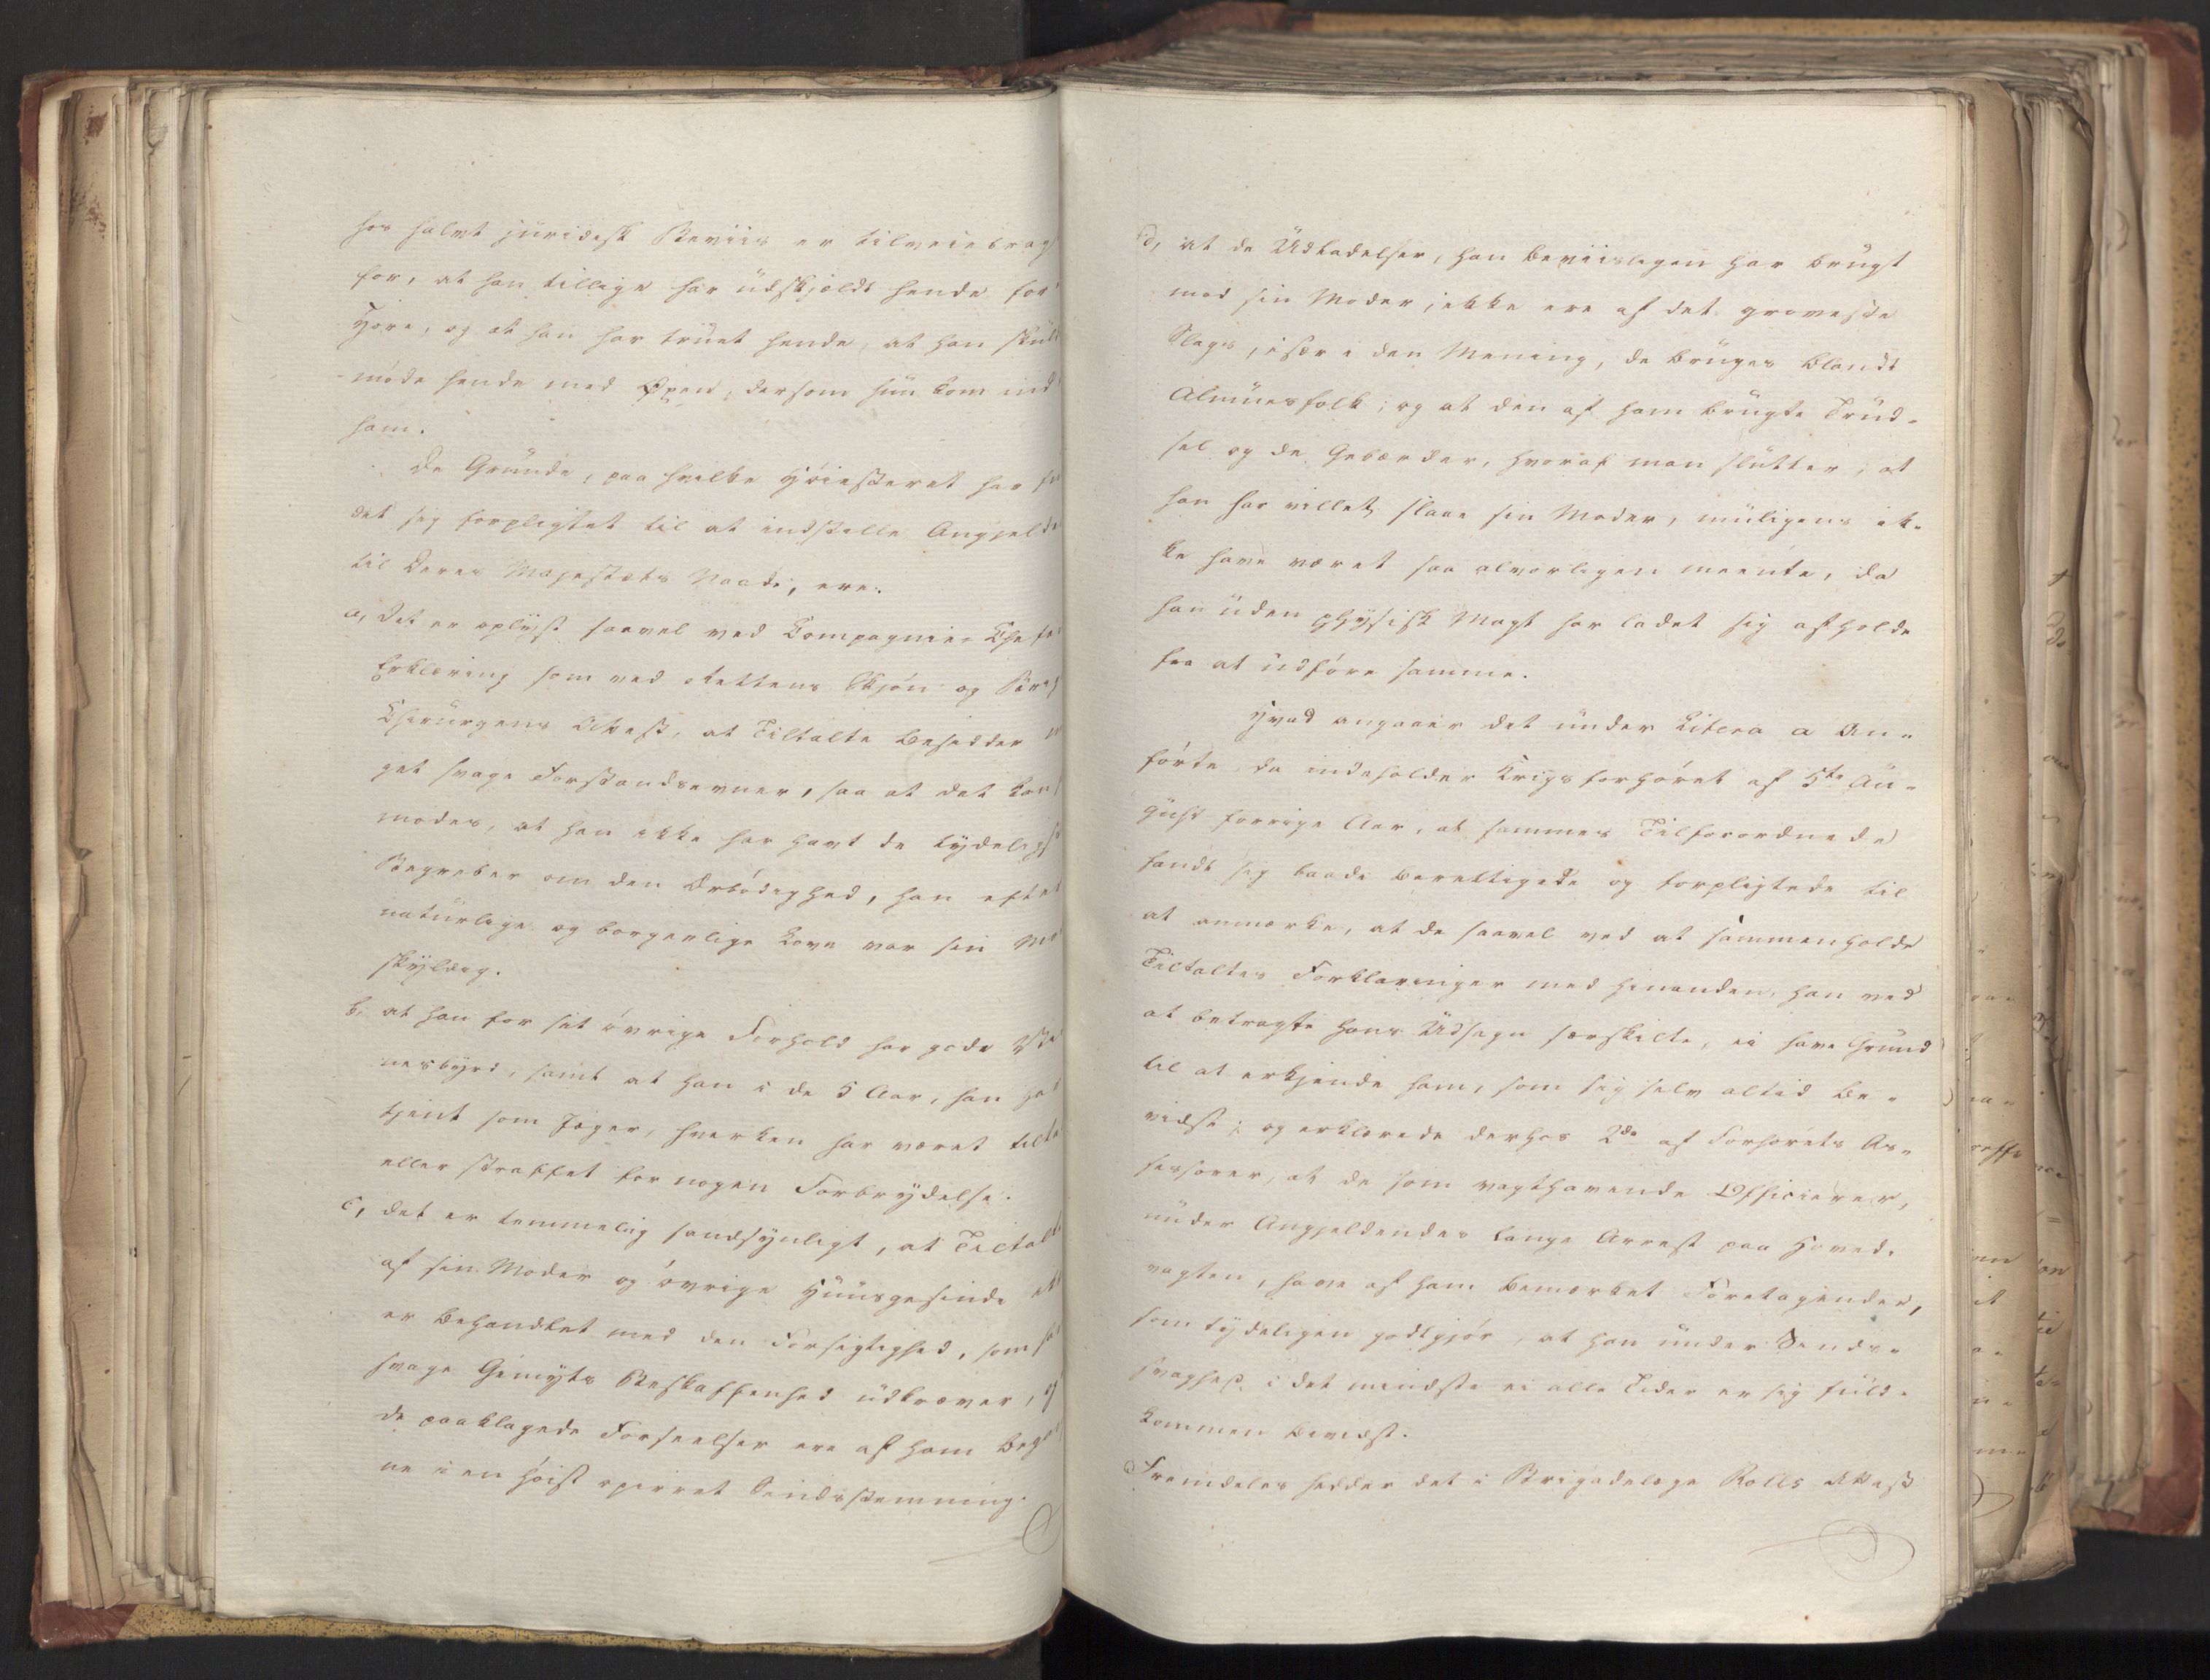 hos halvt juridisk Beviis er tilveiebragt
for, at han tillige har udskjældt hende for
Hore, og at han har truet hende, at han skulde
møde hende med Øxen, dersom hun kom ind
ham.
De Grunde, paa hvilke Høiesteret har fun
det sig forpligtet til at indstille Angjelde
til Deres Majestæts Naade, ere:
a, Det er oplyst saavel ved Compagnie-Chefen
Erklæring som ved Rettens Skjøn og
Chirurgens Attest, at Tiltalte besidder
get svage Forstandsevner, saa at det kan
modes, at han ikke har havt de tydeligste
Begreber om den Ærbødighed, han efter
naturlige og borgerlige Love var sin Mo
skyldig.
b, at han for sit øvrige Forhold har gode Vid
nesbyrd, samt at han i de 5 Aar, han har
tjent som Jæger, hverken har været tilta
eller straffet for nogen Forbrydelse.
c, det er temmelig sandsynligt, at Tiltalte
af sin Moder og øvrige Huusgesinde ikke
er behandlet med den Forsigtighed, som
svage Gemyts Beskaffenhed udkræver, og
de paaklagede Forseelser ere af ham beg
ne i en høist opirret Sindsstemning.
d, at de Udladelser, han beviisligen har brugt
mod sin Moder, ikke ere af det groveste
Slags, især i den Mening, de bruges blandt
Almuesfolk; og at den af ham brugte Trud-
sel og de Gebærder, hvoraf man slutter, at
han har villet slaae sin Moder, muligens ik-
ke have været saa alvorligen meente, da
han uden physisk Magt har ladet sig afholde
fra at udføre samme.
Hvad angaaer det under Litera a An-
førte, da indeholder Krigsforhøret af 5te Au-
gust forrige Aar, at sammes Tilforordnede
fandt sig baade berettigede og forpligtede til
at anmærke, at de saavel ved at sammenholde
Tiltaltes Forklaringer med hinanden, som ved
at betragte hans Udsagn særskilte, ei have Grund
til at erkjende ham, som sig selv altid be-
vidst; og erklærede derhos 2de af Forhørets As-
sessorer, at de som vagthavende Officierer,
under Angjeldendes lange Arrest paa Hoved-
vagten, have af ham bemærket Foretagender,
som tydeligen godtgjør, at han under Sinds-
svaghed i det mindste ei alle Tider er sig fuld-
kommen bevidst.
Fremdeles hedder det i Brigadelæge Rolls Attest